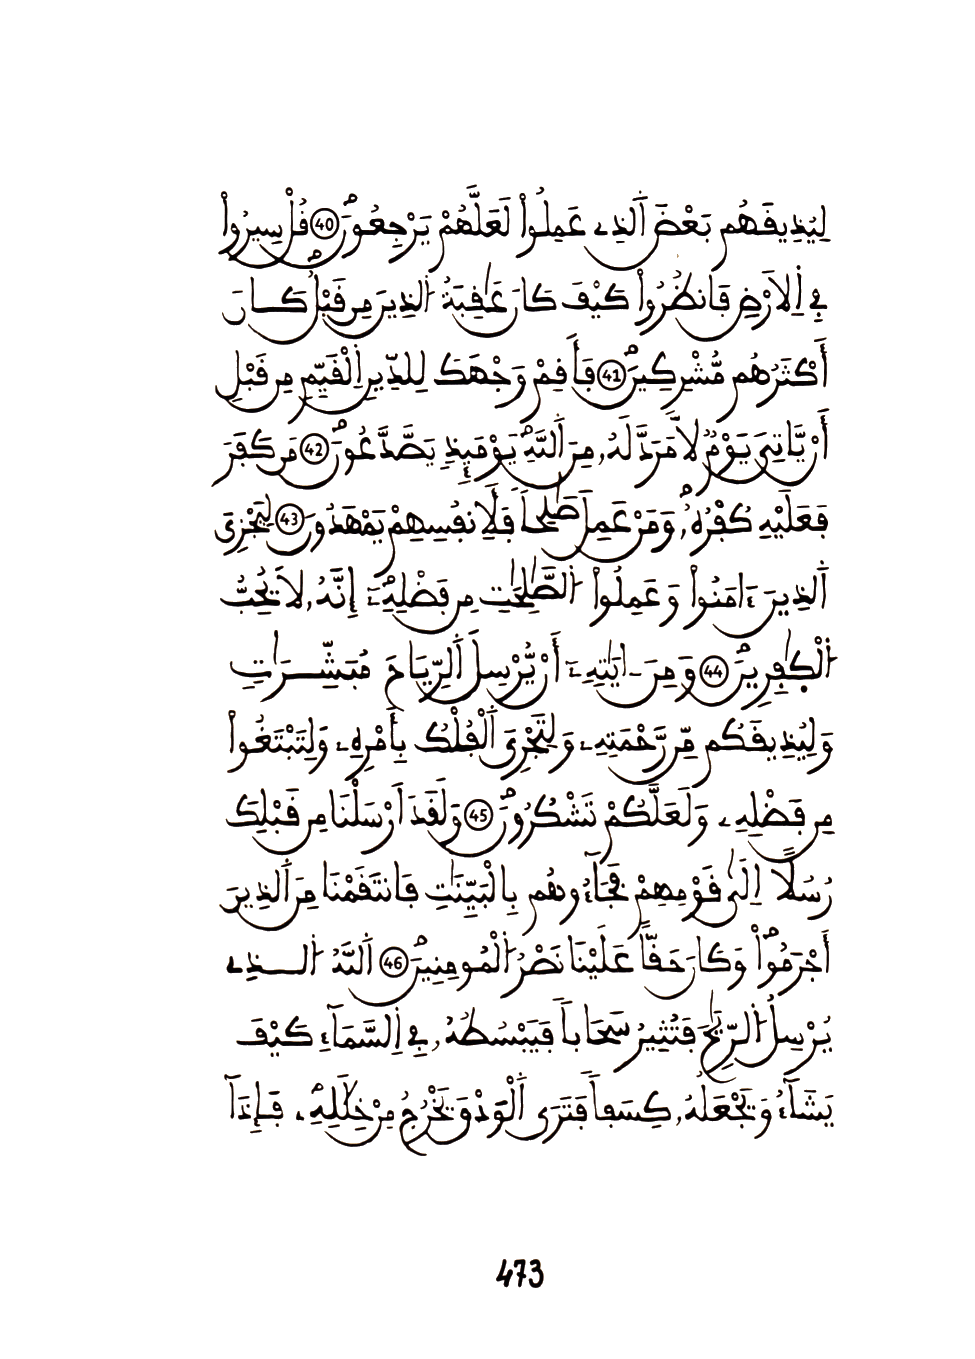 لِيُذِيقَهُم بَعْضَ اَ۬لذِے عَمِلُواْ لَعَلَّهُمْ يَرْجِعُونَۖ 40 قُلْ سِيرُواْ
فِے اِ۬لَارْضِ فَانظُرُواْ كَيْفَ كَانَ عَٰقِبَةُ اُ۬لذِينَ مِن قَبْلُۖ كَانَ
أَكْثَرُهُم مُّشْرِكِينَۖ 41 فَأَقِمْ وَجْهَكَ لِلدِّينِ اِ۬لْقَيِّمِ مِن قَبْلِ
أَنْ يَّاتِيَ يَوْمٞ لَّا مَرَدَّ لَهُۥ مِنَ اَ۬للَّهِۖ يَوْمَئِذٖ يَصَّدَّعُونَۖ 42 مَن كَفَرَ
فَعَلَيْهِ كُفْرُهُۥۖ وَمَنْ عَمِلَ صَٰلِحاٗ فَلِأَنفُسِهِمْ يَمْهَدُونَ 43 لِيَجْزِيَ
اَ۬لذِينَ ءَامَنُواْ وَعَمِلُواْ اُ۬لصَّٰلِحَٰتِ مِن فَضْلِهِۦٓۖ إِنَّهُۥ لَا يُحِبُّ
اُ۬لْكٰ۪فِرِينَۖ 44 وَمِنَ اٰيَٰتِهِۦٓ أَنْ يُّرْسِلَ اَ۬لرِّيَاحَ مُبَشِّرَٰتٖ
وَلِيُذِيقَكُم مِّن رَّحْمَتِهِۦ وَلِتَجْرِيَ اَ۬لْفُلْكُ بِأَمْرِهِۦ وَلِتَبْتَغُواْ
مِن فَضْلِهِۦ وَلَعَلَّكُمْ تَشْكُرُونَۖ 45 وَلَقَدَ اَرْسَلْنَا مِن قَبْلِكَ
رُسُلاً اِلَىٰ قَوْمِهِمْ فَجَآءُوهُم بِالْبَيِّنَٰتِ فَانتَقَمْنَا مِنَ اَ۬لذِينَ
أَجْرَمُواْۖ وَكَانَ حَقّاً عَلَيْنَا نَصْرُ اُ۬لْمُومِنِينَۖ 46 اَ۬للَّهُ اُ۬لذِے
يُرْسِلُ اُ۬لرِّيَٰحَ فَتُثِيرُ سَحَاباٗ فَيَبْسُطُهُۥ فِے اِ۬لسَّمَآءِ كَيْفَ
يَشَآءُ وَيَجْعَلُهُۥ كِسَفاٗ فَتَرَى اَ۬لْوَدْقَ يَخْرُجُ مِنْ خِلَٰلِهِۦۖ فَإِذَآ
473